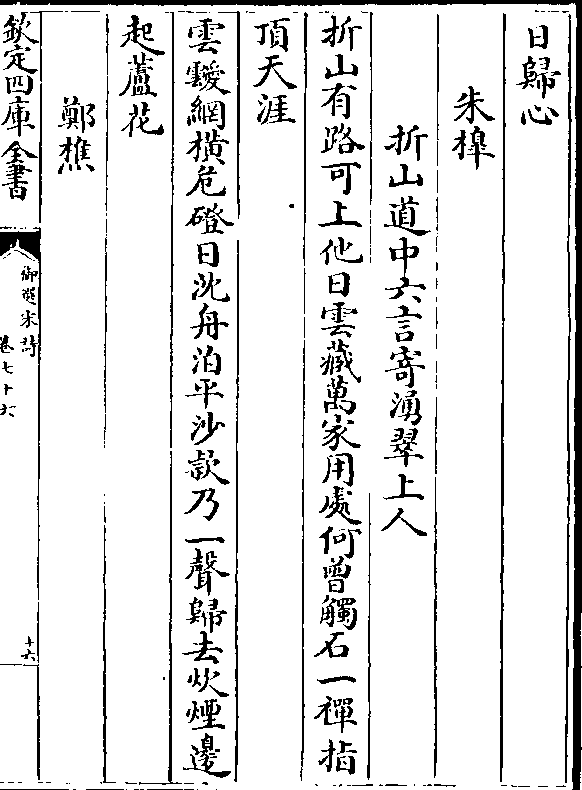 日歸心
朱槔
折山道中六言寄湧翠上人
折山有路可上他日雲藏萬家用處何曾觸石一禪指
頂天涯
雲靉網横危磴日沈舟泊平沙欵乃一聲歸去炊煙邊
起蘆花
鄭樵
欽定四庫全書
御選宋詩
卷七十六
十六